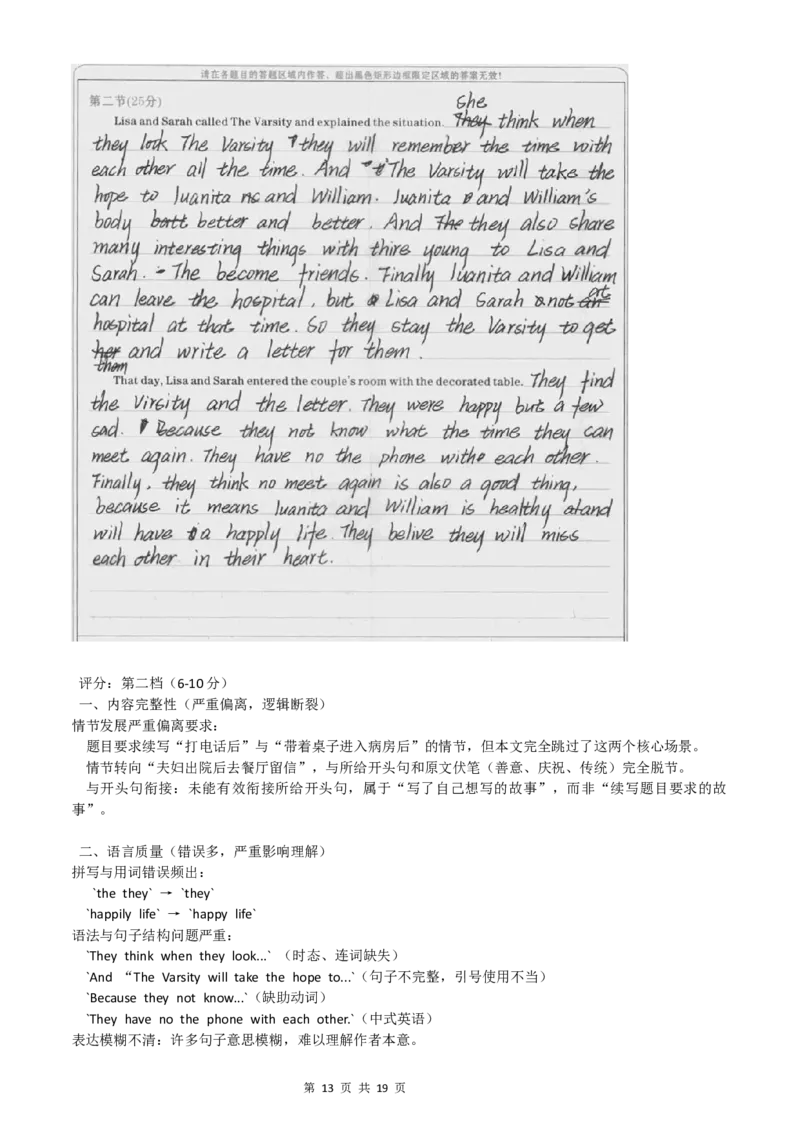 请在各题目的答题区域内作答,超出黑色矩形边框限定区域的答案无效!
第二节(25分)
she
Lisa and Sarah called The Varsity and explained the situation. They think when
they look The Varsity they will remember the time with
each other all the time. And "The Varsity will take the
hope to Juanita and William. Juanita and William's
body batt better and better. And The they also share
many interesting things with thire young to Lisa and
Sarah. The become friends. Finally Juanita and William
can leave the hospital, but Lisa and Sarah not are
hospital at that time. So they stay the Varsity to get
her and write a letter for them.
them
That day, Lisa and Sarah entered the couple's room with the decorated table. They find
the Virsity and the letter. They were happy but a few
sad. Because they not know what the time they can
meet again. They have no the phone with each other.
Finally, they think no meet again is also a good thing,
because it means Juanita and William is healthy and
will have a happly life. They belive they will miss
each other in their heart.
评分:第二档(6-10分)
一、内容完整性(严重偏离,逻辑断裂)
情节发展严重偏离要求:
题目要求续写“打电话后”与“带着桌子进入病房后”的情节,但本文完全跳过了这两个核心场景。
情节转向“夫妇出院后去餐厅留信”,与所给开头句和原文伏笔(善意、庆祝、传统)完全脱节。
与开头句衔接:未能有效衔接所给开头句,属于“写了自己想写的故事”,而非“续写题目要求的故
事”。
二、语言质量(错误多,严重影响理解)
拼写与用词错误频出:
`the they` → `they`
`happily life` → `happy life`
语法与句子结构问题严重:
`They think when they look...` (时态、连词缺失)
`And “The Varsity will take the hope to...`(句子不完整,引号使用不当)
`Because they not know...`(缺助动词)
`They have no the phone with each other.`(中式英语)
表达模糊不清:许多句子意思模糊,难以理解作者本意。
第 13 页 共 19 页